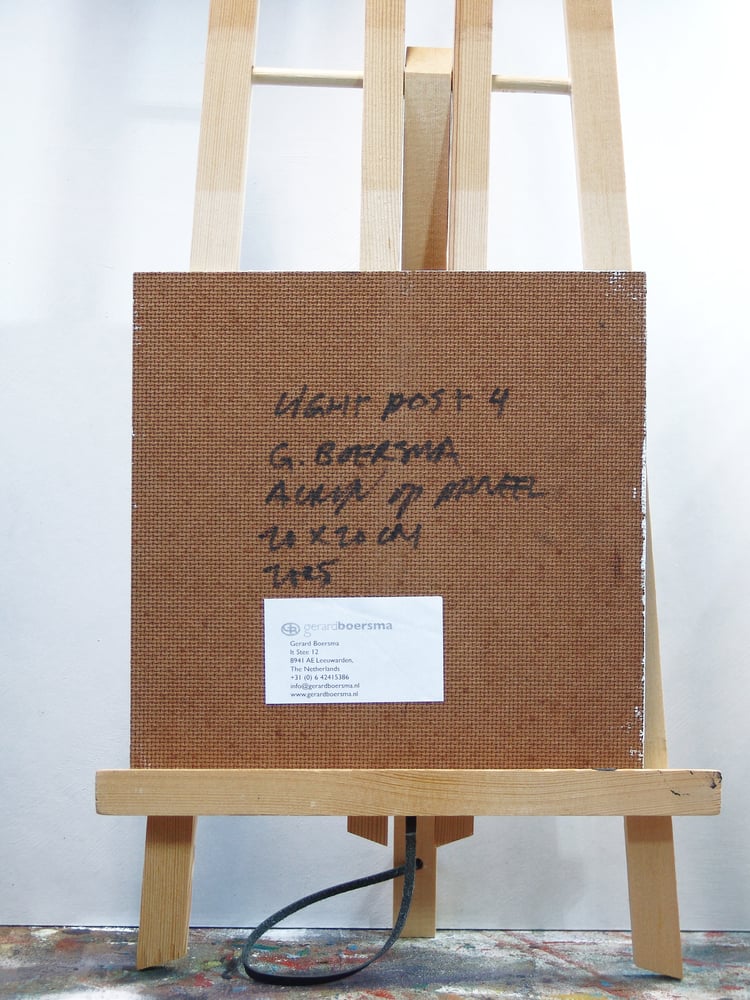 LIGHT POST 4
G. BOERSMA
ACRYL OP PANEEL
20 X 20 CM
2025
GB gerardboersma
Gerard Boersma
It Stee 12
8941 AE Leeuwarden,
The Netherlands
+31 (0) 6 42415386
info@gerardboersma.nl
www.gerardboersma.nl